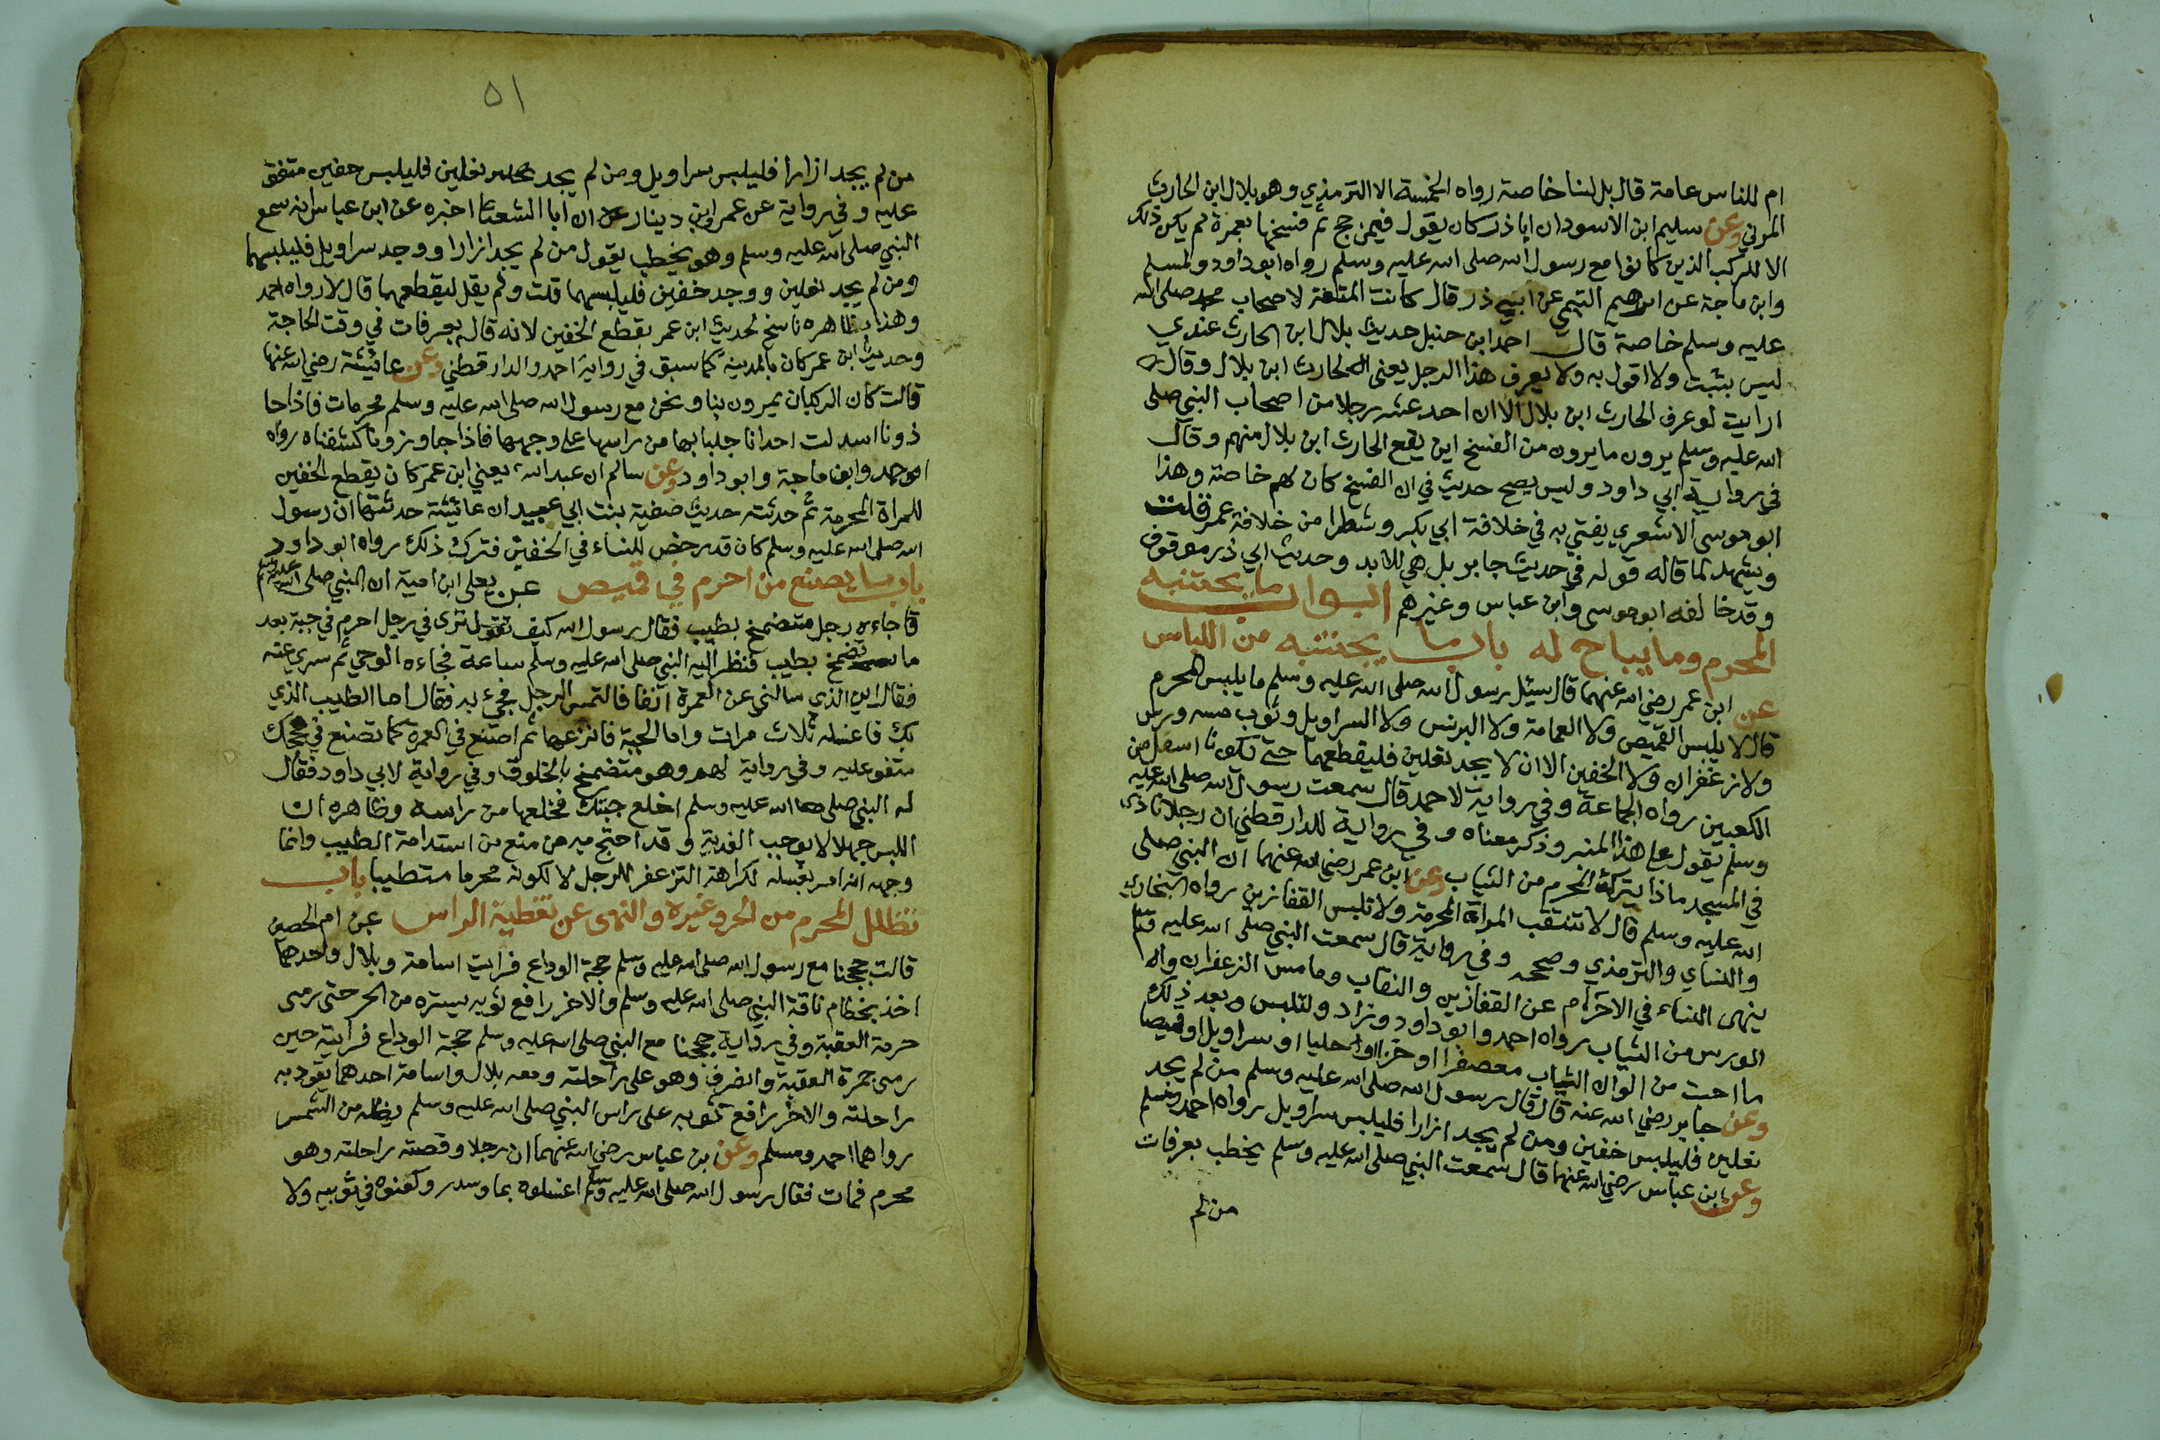 ام للناس عامة قال بل لنا خاصة رواه الخمسة الا الترمذي وهو بلال ابن الحارث
المزني وعن سليم ابن الاسود ان ابا ذر كان يقول فيمن حج ثم فسخها بعمرة لم يكن ذلك
الا للركب الذين كانوا مع رسول الله صلى الله عليه وسلم رواه ابو داود ولمسلم
وابن ماجة عن ابرهيم التيمي عن ابيه ذر قال كانت المتعة لاصحاب محمد صلى الله
عليه وسلم خاصة قال احمد ابن حنبل حديث بلال ابن الحارث عندي
ليس يثبت ولا اقول به ولا يعرف هذا الرجل يعنى الحارث ابن بلال وقال
ارايت لو عرف الحارث ابن بلال الا ان احد عشر رجلا من اصحاب النبي صلى
الله عليه وسلم يرون ما يرون من الفسخ اين يقع الحارث ابن بلال منهم وقال
في رواية ابي داود وليس يصح حديث في ان الفسخ كان لهم خاصة وهذا
ابو موسى الاشعري يفتي به في خلافة ابي بكر وشطرا من خلافة عمر قلت
ويشهد لما قاله قوله في حديث جابر بل هي للابد وحديث ابي ذر موقوف
وقد خالفه ابو موسى وابن عباس وغيرهم ابواب ما يجتنبه
المحرم وما يباح له باب ما يجتنبه من اللباس
عن ابن عمر رضي الله عنهما قال سئل رسول الله صلى الله عليه وسلم ما يلبس المحرم
قال لا يلبس القميص ولا العمامة ولا البرنس ولا السراويل وثوب مسه ورس
ولا زعفران ولا الخفين الا ان لا يجد نعلين فليقطعهما حتى يكونا اسفل من
الكعبين رواه الجماعة وفي رواية لاحمد قال سمعت رسول الله صلى الله عليه
وسلم يقول على هذا المنبر وذكر معناه وفي رواية للدارقطني ان رجلا نادى
في المسجد ماذا يترك المحرم من الثياب وعن ابن عمر رضي الله عنهما ان النبي صلى
الله عليه وسلم قال لا تنتقب المراة المحرمة ولا تلبس القفازين رواه البخاري
والنساي والترمذي وصححه وفي رواية قال سمعت النبي صلى الله عليه وسلم
ينهى النساء في الاحرام عن القفازين والنقاب وما مس الزعفران
الورس من الثياب رواه احمد وابو داود وزاد ولتلبس وبعد ذلك
ما احبت من الوان الثياب معصفرا او خزا او حليا او سراويل او قميصا
وعن جابر رضي الله عنه قال قال رسول الله صلى الله عليه وسلم من لم يجد
نعلين فليلبس خفين ومن لم يجد ازارا فليلبس سراويل رواه احمد ومسلم
وعن ابن عباس رضي الله عنهما قال سمعت النبي صلى الله عليه وسلم يخطب بعرفات
من لم
٥١
من لم يجد ازارا فليلبس سراويل ومن لم يجد نعلين فليلبس خفين متفق
عليه وفي رواية عن عمرو ابن دينار ان ابا الشعثا اخبره عن ابن عباس انه سمع
النبي صلى الله عليه وسلم وهو يخطب يقول من لم يجد ازارا ووجد سراويل فليلبسهما
ومن لم يجد نعلين ووجد خفين فليلبسهما قلت ولم يقل ليقطعهما قال لا رواه احمد
وهذا بظاهره ناسخ لحديث ابن عمر بقطع الخفين لانه قال بعرفات في وقت الحاجة
وحديث ابن عمر كان بالمدينة كما سبق في رواية احمد والدارقطني وعن عائشة رضي الله عنها
قالت كان الركبان يمرون بنا ونحن مع رسول الله صلى الله عليه وسلم محرمات فاذا حا
ذونا اسدلت احدانا جلبابها من راسها على وجهها فاذا جاوزونا كشفناه رواه
احمد وابن ماجة وابو داود وعن سالم ان عبد الله يعني ابن عمر كان يقطع الخفين
للمراة المحرمة ثم حدثته حديث صفية بنت ابي عبيد ان عائشة حدثتها ان رسول
الله صلى الله عليه وسلم كان قد رخص للنساء في الخفين فترك ذلك رواه ابو داود
باب ما يصنع من احرم في قميص عن يعلى ابن امية ان النبي صلى الله عليه وسلم
قا جاءه رجل متضمخ بطيب فقال رسول الله كيف ترى في رجل احرم في جبة بعد
ما تضمخ بطيب فنظر اليه النبي صلى الله عليه وسلم ساعة فجاءه الوحي ثم سري عنه
فقال اين الذي سالني عن العمرة انفا فالتمس الرجل فجيء به فقال اما الطيب الذي
بك فاغسله ثلاث مرات واما الجبة فانزعها ثم اصنع في العمرة كما تصنع في حجك
متفق عليه وفي رواية لهم وهو متضمخ بالخلوق وفي رواية لابي داود فقال
له النبي صلى الله عليه وسلم اخلع جبتك فخلعها من راسه وظاهره ان
اللبس جهلا لا يوجب الفدية وقد احتج به من منع من استدامة الطيب وانما
وجهه انه امر بغسله لكراهة التزعفر للرجل لا لكونه محرما متطيبا باب
تظلل المحرم من الحر وغيره والنهى عن تغطية الراس عن ام الحصين
قالت حججنا مع رسول الله صلى الله عليه وسلم حجة الوداع فرايت اسامة وبلال واحدهما
اخذ بخطام ناقة النبي صلى الله عليه وسلم والاخر رافع ثوبه يستره من الحر حتى رمى
جمرة العقبة وفي رواية حججنا مع النبي صلى الله عليه وسلم حجة الوداع فرايته حين
رمى جمرة العقبة وانصرف وهو على راحلته ومعه بلال واسامة احدهما يقود به
راحلته والاخر رافع ثوبه على راس النبي صلى الله عليه وسلم يظله من الشمس
رواهما احمد ومسلم وعن بن عباس رضي الله عنهما ان رجلا وقصته راحلته وهو
محرم فمات فقال رسول الله صلى الله عليه وسلم اغسلوه بما وسدر وكفنوه في ثوبيه ولا